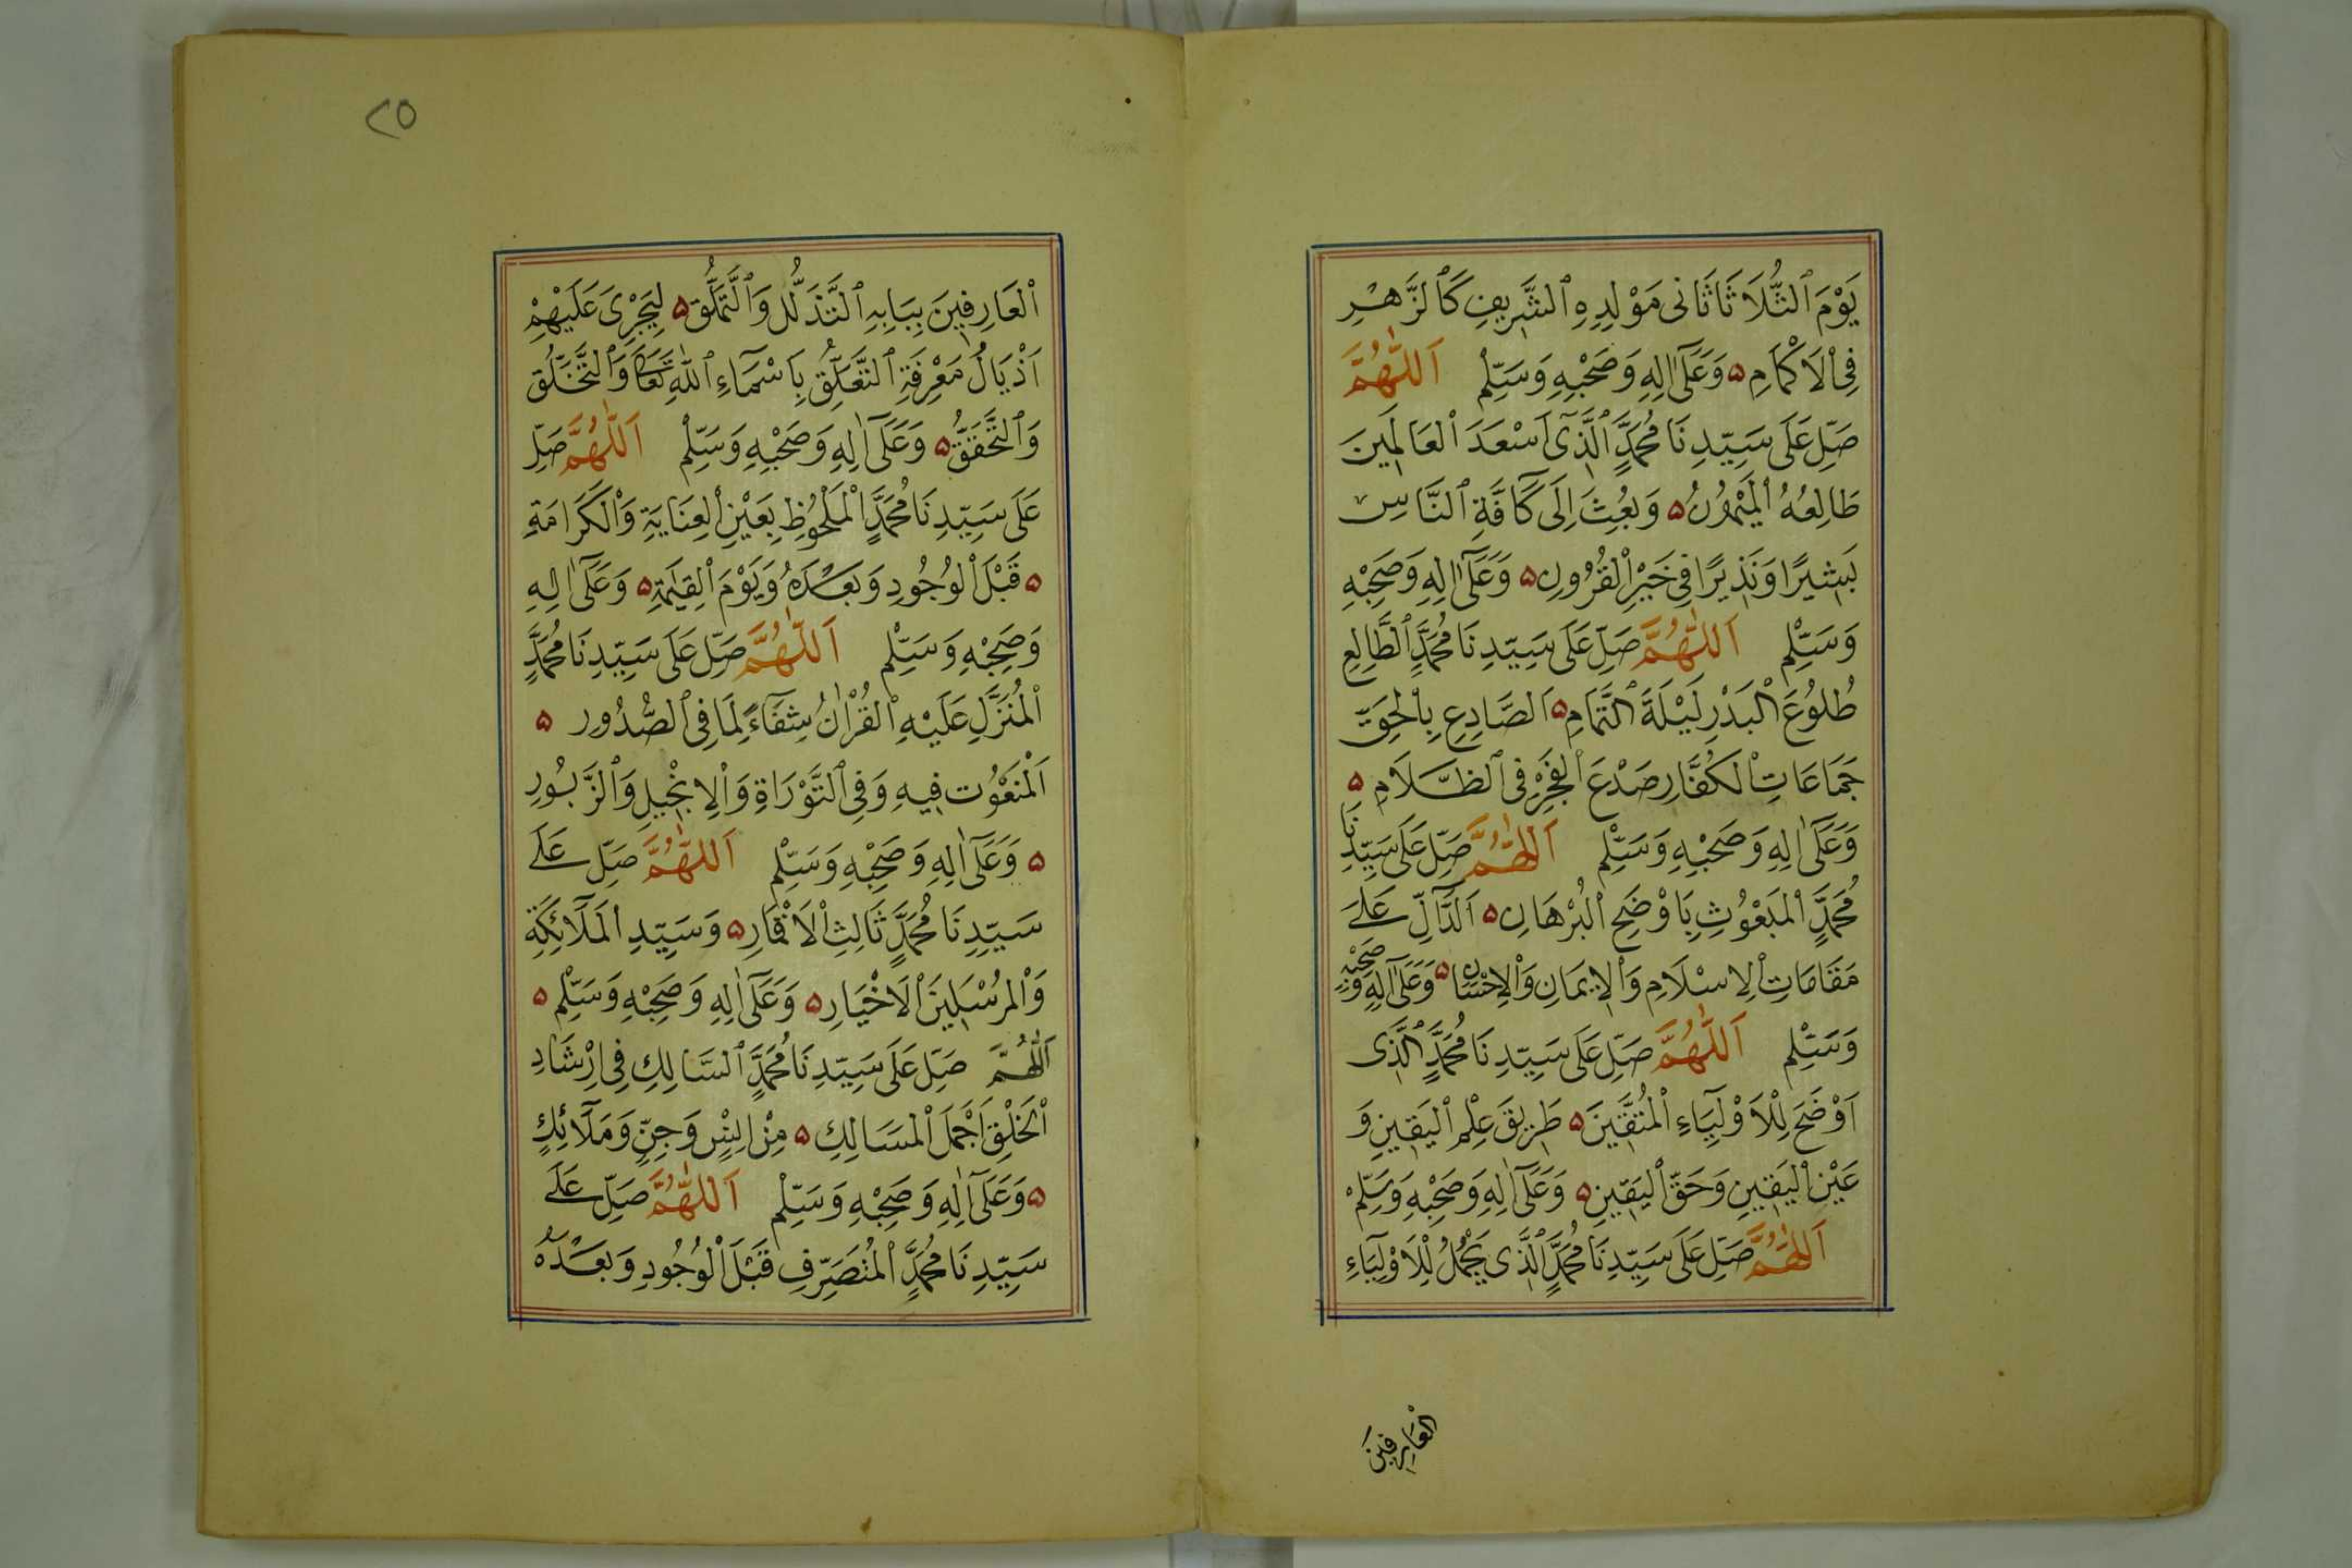 يَوْمَ ٱلثُّلَاثَا ثَانِى مَوْلِدِهِ ٱلشَّرِيفِ كَٱلزَّهْرِ
فِى ٱلْاَكْمَامِ ۵ وَعَلَىٰٓ اٰلِهِ وَصَحْبِهِ وَسَلِّمْ اَللّٰهُمَّ
صَلِّ عَلَى سَيِّدِنَا مُحَمَّدٍ ٱلَّذِىٓ اَسْعَدَ ٱلْعَالَمِينَ
طَالِعُهُ ٱلْمَيْمُونُ ۵ وَبُعِثَ اِلَى كَآفَّةِ ٱلنَّاسِ
بَشِيرًا وَنَذِيرًا فِى خَيْرِ ٱلْقُرُونِ ۵ وَعَلَىٰٓ اٰلِهِ وَصَحْبِهِ
وَسَلِّمْ اَللّٰهُمَّ صَلِّ عَلَى سَيِّدِنَا مُحَمَّدٍ ٱلطَّالِعِ
طُلُوعَ ٱلْبَدْرِ لَيْلَةَ ٱلتَّمَامِ ۵ اَلصَّادِعِ بِٱلْحَقِّ
جَمَاعَاتِ ٱلْكُفَّارِ صَدْعَ ٱلْفَجْرِ فِى ٱلظَّلَامِ ۵
وَعَلَىٰٓ اٰلِهِ وَصَحْبِهِ وَسَلِّمْ اَللّٰهُمَّ صَلِّ عَلَى سَيِّدِنَا
مُحَمَّدٍ ٱلْمَبْعُوثِ بِاَوْضَحِ ٱلْبُرْهَانِ ۵ اَلدَّآلِّ عَلَى
مَقَامَاتِ ٱلْاِسْلَامِ وَٱلْاِيمَانِ وَٱلْاِحْسَانِ ۵ وَعَلَىٰٓ اٰلِهِ وَصَحْبِهِ
وَسَلِّمْ اَللّٰهُمَّ صَلِّ عَلَى سَيِّدِنَا مُحَمَّدٍ ٱلَّذِى
اَوْضَحَ لِلْاَوْلِيَآءِ ٱلْمُتَّقِينَ ۵ طَرِيقَ عِلْمِ ٱلْيَقِينِ وَ
عَيْنِ ٱلْيَقِينِ وَحَقِّ ٱلْيَقِينِ ۵ وَعَلَىٰٓ اٰلِهِ وَصَحْبِهِ وَسَلِّمْ
اَللّٰهُمَّ صَلِّ عَلَى سَيِّدِنَا مُحَمَّدٍ ٱلَّذِى يَجْمُلُ لِلْاَوْلِيَآءِ
ٱلْعَارِفِينَ
٢٥
ٱلْعَارِفِينَ بِبَابِهِ ٱلتَّذَلُّلُ وَٱلتَّمَلُّقُ ۵ لِيَجْرِىَ عَلَيْهِمْ
اَذْيَالُ مَعْرِفَةِ ٱلتَّعَلُّقِ بِاَسْمَآءِ ٱللّٰهِ تَعَالَى وَٱلتَّخَلُّقِ
وَٱلتَّحَقُّقِ ۵ وَعَلَىٰٓ اٰلِهِ وَصَحْبِهِ وَسَلِّمْ اَللّٰهُمَّ صَلِّ
عَلَى سَيِّدِنَا مُحَمَّدٍ ٱلْمَلْحُوظِ بِعَيْنِ ٱلْعِنَايَةِ وَٱلْكَرَامَةِ
۵ قَبْلَ ٱلْوُجُودِ وَبَعْدَهُ وَيَوْمَ ٱلْقِيٰمَةِ ۵ وَعَلَىٰٓ اٰلِهِ
وَصَحْبِهِ وَسَلِّمْ اَللّٰهُمَّ صَلِّ عَلَى سَيِّدِنَا مُحَمَّدٍ
ٱلْمُنَزَّلِ عَلَيْهِ ٱلْقُرْاٰنُ شِفَآءً لِمَا فِى ٱلصُّدُورِ ۵
اَلْمَنْعُوتِ فِيهِ وَفِى ٱلتَّوْرَاةِ وَٱلْاِنْجِيلِ وَٱلزَّبُورِ
۵ وَعَلَىٰٓ اٰلِهِ وَصَحْبِهِ وَسَلِّمْ اَللّٰهُمَّ صَلِّ عَلَى
سَيِّدِنَا مُحَمَّدٍ ثَالِثِ ٱلْاَقْمَارِ ۵ وَسَيِّدِ ٱلْمَلَآئِكَةِ
وَٱلْمُرْسَلِينَ ٱلْاَخْيَارِ ۵ وَعَلَىٰٓ اٰلِهِ وَصَحْبِهِ وَسَلِّمْ ۵
اَللّٰهُمَّ صَلِّ عَلَى سَيِّدِنَا مُحَمَّدٍ ٱلسَّالِكِ فِى اِرْشَادِ
ٱلْخَلْقِ اَجْمَلَ ٱلْمَسَالِكِ ۵ مِنْ اِنْسٍ وَجِنٍّ وَمَلَآئِكٍ
۵ وَعَلَىٰٓ اٰلِهِ وَصَحْبِهِ وَسَلِّمْ اَللّٰهُمَّ صَلِّ عَلَى
سَيِّدِنَا مُحَمَّدٍ ٱلْمُتَصَرِّفِ قَبْلَ ٱلْوُجُودِ وَبَعْدَهُ